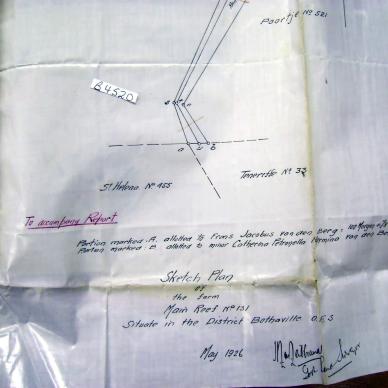 Paartje No 521
B4520
a B
St Helena No 455
Teneriffe No 33
To accompany Report
Portion marked A. allotted to Frans Jacobus van den Berg.
Portion marked B allotted to minor Catherina Petronella Hermina van den Be
Sketch Plan
of
the farm
Main Reef No 131
Situate in the District Bothaville O.F.S
May 1926